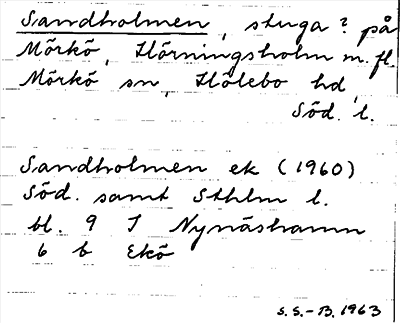 Sandholmen, stuga? på
Mörkö, Hörningsholm m. fl.
Mörkö sn, Hölebo hd,
Söd. l.
Sandholmen ek (1960)
Söd. samt Sthlm l.
bl. 9 I Nynäshamn
6 b Ekö
S.S.-B. 1963